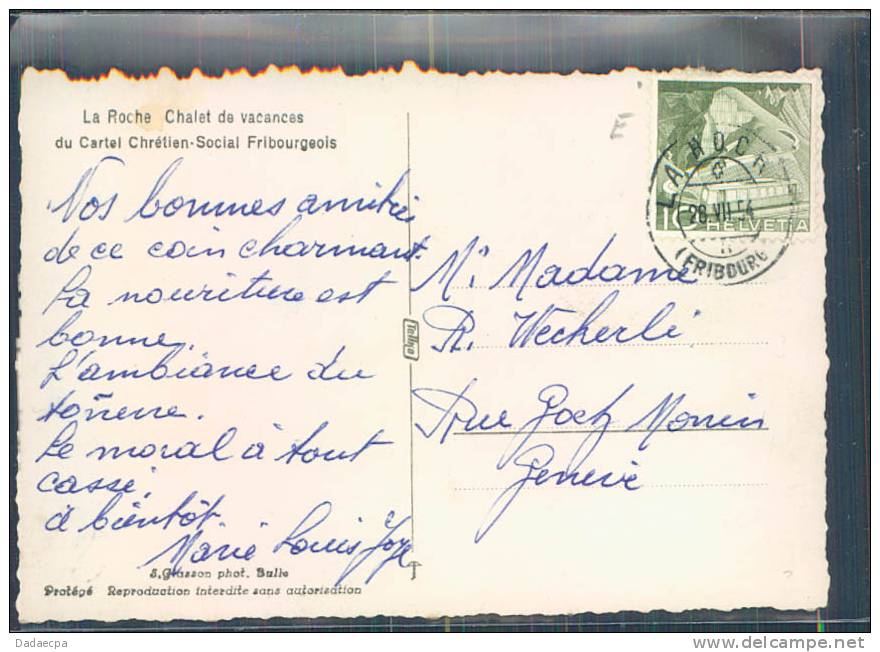 La Roche Chalet de vacances
du Cartel Chrétien-Social Fribourgeois
Nos bonnes amitiés
de ce coin charmant.
La nouriture est
bonne.
L'ambiance du
tonnerre.
Le moral à tout
cassé.
à bientôt.
Marie Louis Joye
S. Glasson phot. Bulle
Protégé Reproduction interdite sans autorisation
Tellko
E
HELVETIA
10
LA ROCHE
28.VII.54
(FRIBOURG)
M. Madame
R. Wecherli
Rue Monin
Genève
Dadaecpa
www.delcampe.net